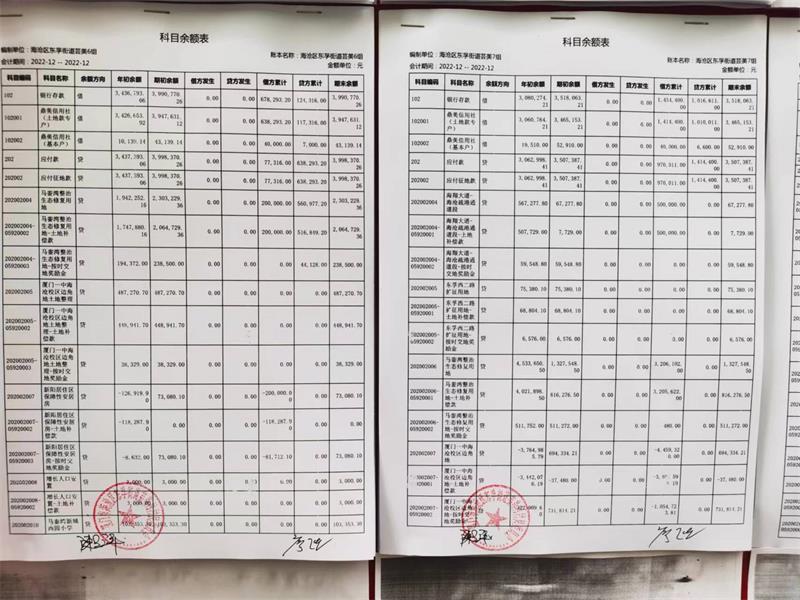 科目余额表
编制单位：海沧区东孚街道芸美6组
账本名称：海沧区东孚街道芸美6组
会计期间：2022-12 -- 2022-12
金额单位：元
科目编码 科目名称 余额方向 年初余额 期初余额 借方发生 贷方发生 借方累计 贷方累计 期末余额
102 银行存款 借 3,436,793.06 3,990,770.26 0.00 0.00 678,293.20 124,316.00 3,990,770.26
102001 鼎美信用社（土地款专户） 借 3,426,653.92 3,947,631.12 0.00 0.00 638,293.20 117,316.00 3,947,631.12
102002 鼎美信用社（基本户） 借 10,139.14 43,139.14 0.00 0.00 40,000.00 7,000.00 43,139.14
202 应付款 贷 3,437,393.06 3,998,370.26 0.00 0.00 77,316.00 638,293.20 3,998,370.26
202002 应付征地款 贷 3,437,393.06 3,998,370.26 0.00 0.00 77,316.00 638,293.20 3,998,370.26
202002004 马銮湾整治生态修复用地 贷 1,942,252.16 2,303,229.36 0.00 0.00 200,000.00 560,977.20 2,303,229.36
202002004-05920002 马銮湾整治生态修复用地-土地补偿款 贷 1,747,880.16 2,064,729.36 0.00 0.00 200,000.00 516,849.20 2,064,729.36
202002004-05920003 马銮湾整治生态修复用地-按时交地奖励金 贷 194,372.00 238,500.00 0.00 0.00 0.00 44,128.00 238,500.00
202002005 厦门一中海沧校区边角地土地整理 贷 487,270.70 487,270.70 0.00 0.00 0.00 0.00 487,270.70
202002005-05920002 厦门一中海沧校区边角地土地整理-土地补偿款 贷 448,941.70 448,941.70 0.00 0.00 0.00 0.00 448,941.70
202002005-05920003 厦门一中海沧校区边角地土地整理-按时交地奖励金 贷 38,329.00 38,329.00 0.00 0.00 0.00 0.00 38,329.00
202002007 新阳居住区保障性安居房 贷 -126,919.90 73,080.10 0.00 0.00 -200,000.00 0.00 73,080.10
202002007-05920002 新阳居住区保障性安居房-土地补偿款 贷 -118,287.90 0.00 0.00 0.00 -118,287.90 0.00 0.00
202002007-05920003 新阳居住区保障性安居房-按时交地奖励金 贷 -8,632.00 73,080.10 0.00 0.00 -81,712.10 0.00 73,080.10
202002008 增长人口安置 贷 3,000.00 3,000.00 0.00 0.00 0.00 0.00 3,000.00
202002008-05920002 增长人口安置-土地补偿款 贷 3,000.00 3,000.00 0.00 0.00 0.00 0.00 3,000.00
202002010 马銮湾新城西园小学 贷 103,353.30 0.00 0.00 0.00 0.00 103,353.30
科目余额表
编制单位：海沧区东孚街道芸美7组
账本名称：海沧区东孚街道芸美7组
会计期间：2022-12 -- 2022-12
金额单位：元
科目编码 科目名称 余额方向 年初余额 期初余额 借方发生 贷方发生 借方累计 贷方累计 期末余额
102 银行存款 借 3,080,274.21 3,518,063.21 0.00 0.00 1,454,400.00 1,016,611.00 3,518,063.21
102001 鼎美信用社（土地款专户） 借 3,060,764.21 3,465,153.21 0.00 0.00 1,414,400.00 1,010,011.00 3,465,153.21
102002 鼎美信用社（基本户） 借 19,510.00 52,910.00 0.00 0.00 40,000.00 6,600.00 52,910.00
202 应付款 贷 3,062,998.41 3,507,387.41 0.00 0.00 970,011.00 1,414,400.00 3,507,387.41
202002 应付征地款 贷 3,062,998.41 3,507,387.41 0.00 0.00 970,011.00 1,414,400.00 3,507,387.41
202002004 海翔大道-海沧疏港通道段 贷 567,277.80 67,277.80 0.00 0.00 500,000.00 0.00 67,277.80
202002004-05920001 海翔大道-海沧疏港通道段-土地补偿款 贷 507,729.00 7,729.00 0.00 0.00 500,000.00 0.00 7,729.00
202002004-05920002 海翔大道-海沧疏港通道段-按时交地奖励金 贷 59,548.80 59,548.80 0.00 0.00 0.00 0.00 59,548.80
202002005 东孚西二路扩征用地 贷 75,380.10 75,380.10 0.00 0.00 0.00 0.00 75,380.10
202002005-05920001 东孚西二路扩征用地-土地补偿款 贷 68,804.10 68,804.10 0.00 0.00 0.00 0.00 68,804.10
202002005-05920002 东孚西二路扩征用地-按时交地奖励金 贷 6,576.00 6,576.00 0.00 0.00 0.00 0.00 6,576.00
202002006 马銮湾整治生态修复用地 贷 4,533,650.50 1,327,548.50 0.00 0.00 3,206,102.00 0.00 1,327,548.50
202002006-05920001 马銮湾整治生态修复用地-土地补偿款 贷 4,021,898.50 816,276.50 0.00 0.00 3,205,622.00 0.00 816,276.50
202002006-05920002 马銮湾整治生态修复用地-按时交地奖励金 贷 511,752.00 511,272.00 0.00 0.00 480.00 0.00 511,272.00
202002007 厦门一中海沧校区边角地 贷 -3,764,985.79 694,334.21 0.00 0.00 -4,459,320.00 0.00 694,334.21
202002007-05920001 厦门一中海沧校区边角地-土地补偿款 贷 -3,442,076.19 -37,480.00 0.00 0.00 0.00 -37,480.00
202002007-05920002 厦门一中海沧校区边角地-按时交地奖励金 贷 731,814.21 0.00 0.00 -1,054,723.81 0.00 731,814.21